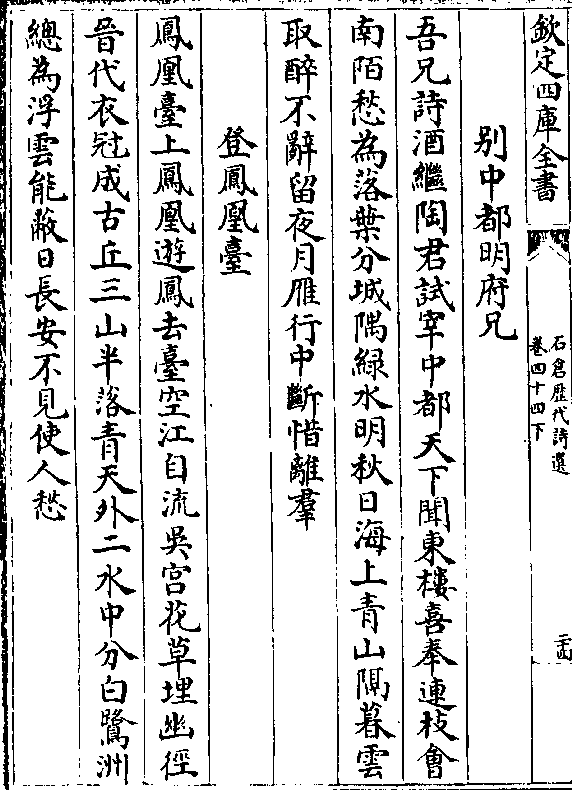 欽定四庫全書
石倉歴代詩選
卷四十四下
二十四
别中都明府兄
吾兄詩酒繼陶君試宰中都天下聞東樓喜奉連枝會
南陌愁為落葉分城隅緑水明秋日海上青山隔暮雲
取醉不辭留夜月雁行中斷惜離羣
登鳳凰臺
鳳凰臺上鳳凰遊鳳去臺空江自流吳宫花草埋幽徑
晉代衣冠成古丘三山半落青天外二水中分白鷺洲
總為浮雲能蔽日長安不見使人愁